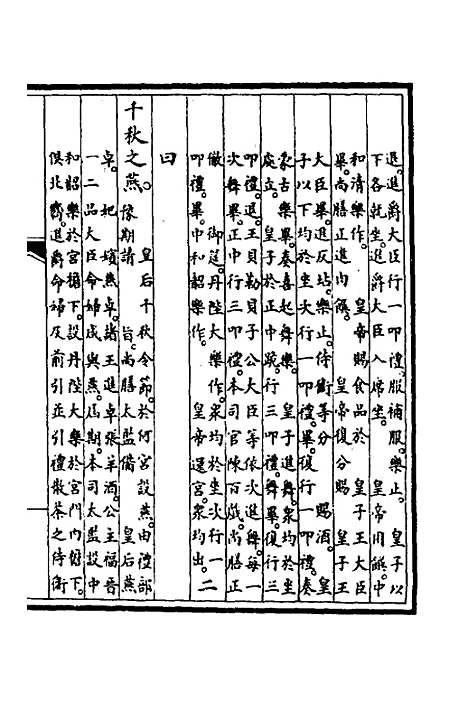 退進爵大臣行一叩禮服補服樂止 皇子以
下各就坐進爵大臣入席坐 皇帝用饌中
和清樂作 皇帝賜食品於 皇子王大臣
畢尚膳正進肉饌 皇帝復分賜 皇子王
大臣畢進反坫樂止侍衛等分 賜酒皇
子以下均於坐次行一叩禮畢復行一叩禮奏
蒙古樂畢奏喜起舞樂 皇子進舞衆均於坐
處立 皇子於正中跪行三叩禮舞畢復行三
叩禮退王貝勒貝子公大臣等依次進舞每一
次舞畢正中行三叩禮本司官陳百戲尚膳正
徹 御筵丹陛大樂作衆均於坐次行一
叩禮畢中和韶樂作 皇帝還宮衆均出
二
曰
千秋之燕
皇后千秋令節於何宮設燕由禮部
豫期請 旨尚膳太監備 皇后燕
卓 妃嬪燕卓諸王進卓張羊酒公主福晉
一二品大臣命婦咸與燕屆期本司太監設中
和韶樂於宮檐下設丹陛大樂於宮門内下
俱北嚮進爵命婦及前引並引禮散茶之侍衛